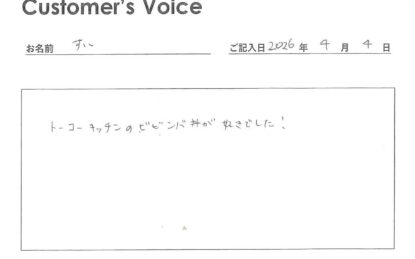 Customer's Voice
お名前 すい
ご記入日 2026 年 4 月 4 日
トーコーキッチンのビビンバ丼が好きでした!